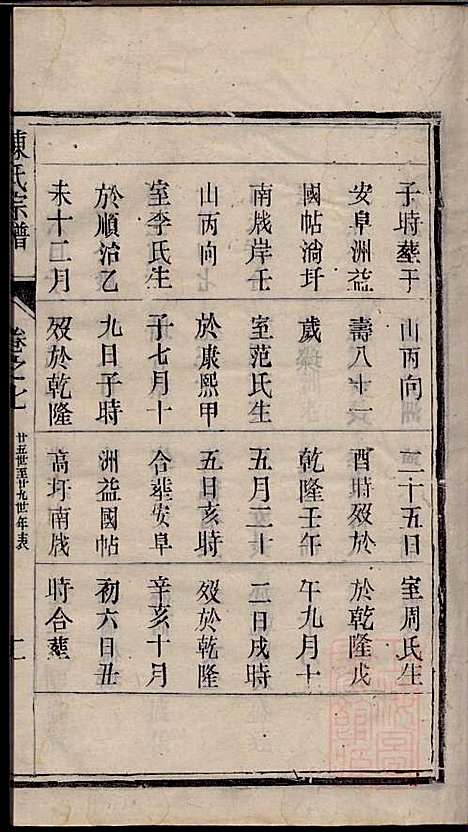 子時塟于
安阜洲益
國帖淌圩
南戕岸壬
山丙向
室李氏生
於順治乙
未十二月
山丙向
壽八十一
歲
室范氏生
於康熙甲
子七月十
九日子時
歿於乾隆
二十五日
酉時歿於
乾隆壬午
五月二十
五日亥時
合塟安阜
洲益國帖
高圩南戕
室周氏生
於乾隆戊
午九月十
二日戌時
歿於乾隆
辛亥十月
初六日丑
時合塟
陳氏宗譜
卷之七
廿五世至廿九世年表